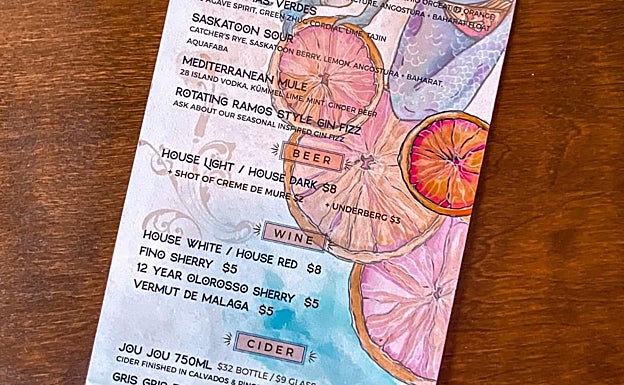 VERDES
AGAVE SPIRIT, GREEN ZHUG CORDIAL, LIME, TAJIN
ORGEAT
ORANGE
TINCTURE, ANGOSTURA + BAHARAT FLOAT
SASKATOON SOUR
CATCHER'S RYE, SASKATOON BERRY, LEMON, ANGOSTURA + BAHARAT,
AQUAFABA
MEDITERRANEAN MULE
28 ISLAND VODKA, KÜMMEL, LIME, MINT, GINGER BEER
ROTATING RAMOS STYLE GIN FIZZ
ASK ABOUT OUR SEASONAL INSPIRED GIN FIZZ
BEER
HOUSE LIGHT / HOUSE DARK $8
+ SHOT OF CREME DE MURE $2 + UNDERBERG $3
WINE
HOUSE WHITE / HOUSE RED $8
FINO SHERRY $5
12 YEAR OLOROSSO SHERRY $5
VERMUT DE MALAGA $5
CIDER
JOU JOU 750ML $32 BOTTLE / $9 GLASS
CIDER FINISHED IN CALVADOS &
GRIS GRIS